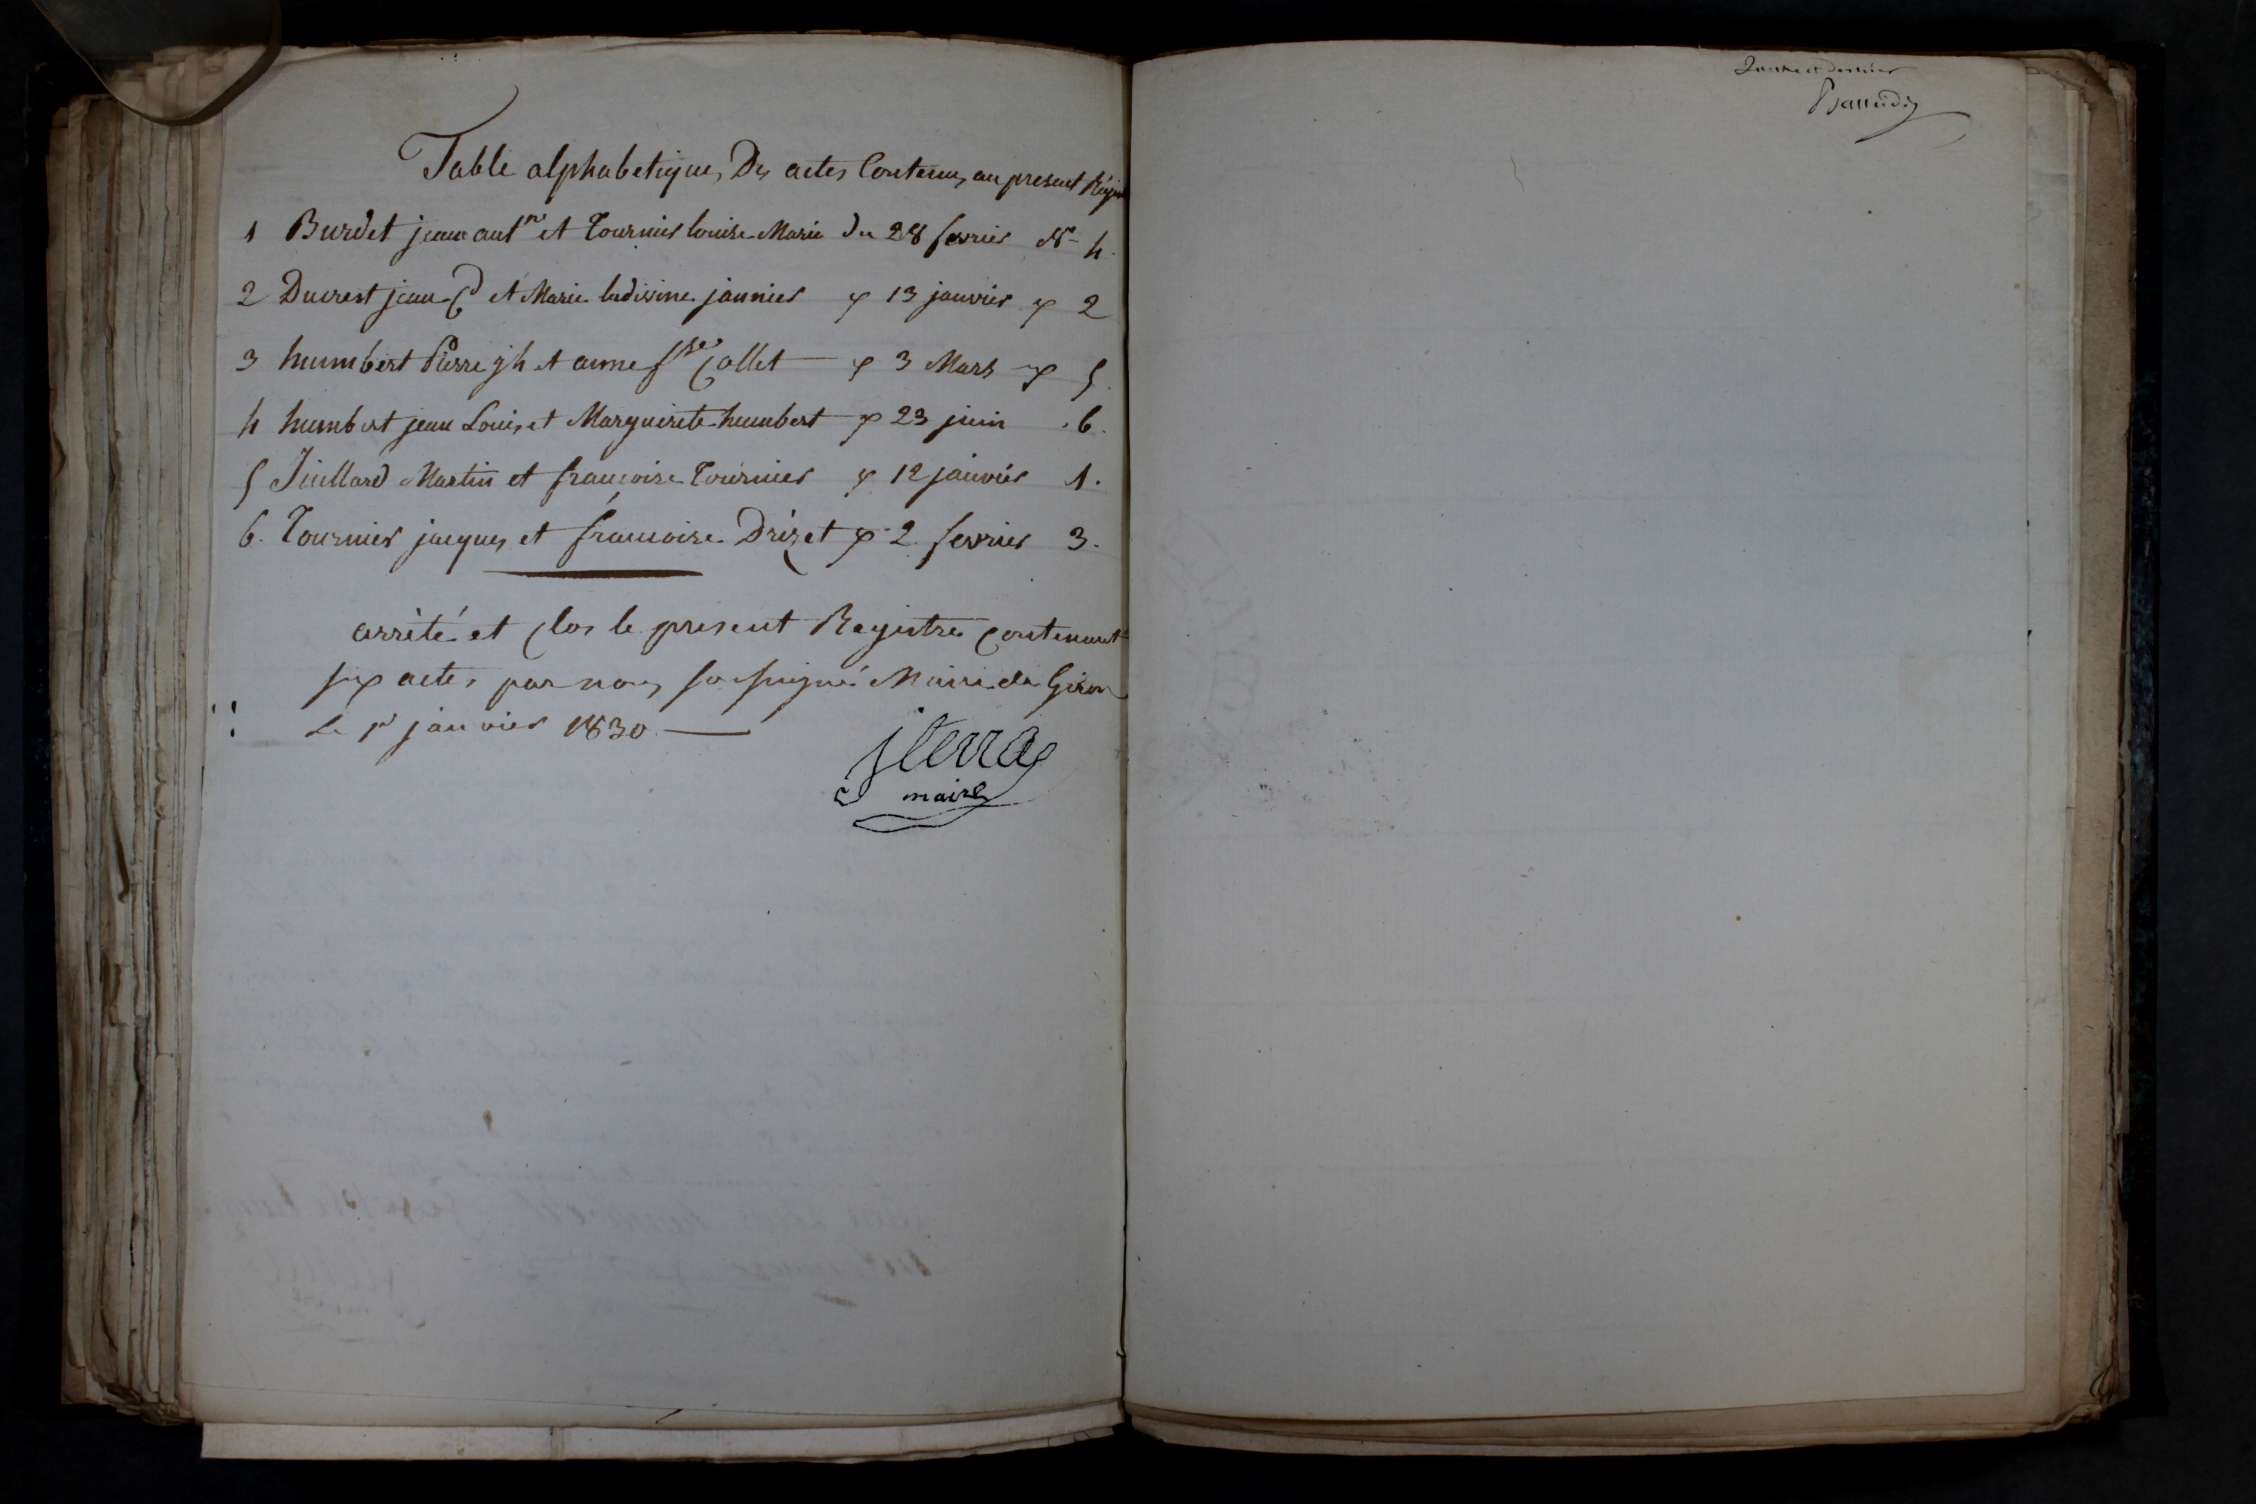 Table alphabetique, Des actes Contenus au present Régis
1 Burdet jean ant.ne et Tournier louise Marie du 28 fevrier N° 4.
2 Ducrest jean Cd et Marie ludivine jannier " 13 janvier " 2
3 humbert Pierre jh et anne fse Collet — " 3 Mars " 5.
4 humbert jean Louis et Marguerite humbert " 23 juin . 6.
5 Juillard Martin et françoise Tournier " 12 janvier 1.
6. Tournier jacques et françoise Drizet " 2 fevrier 3.
arrèté et Clos le present Registre Contenant
six actes par nous soussigné Maire de Giron
Le 1er janvier 1830 —
maire
et dernier